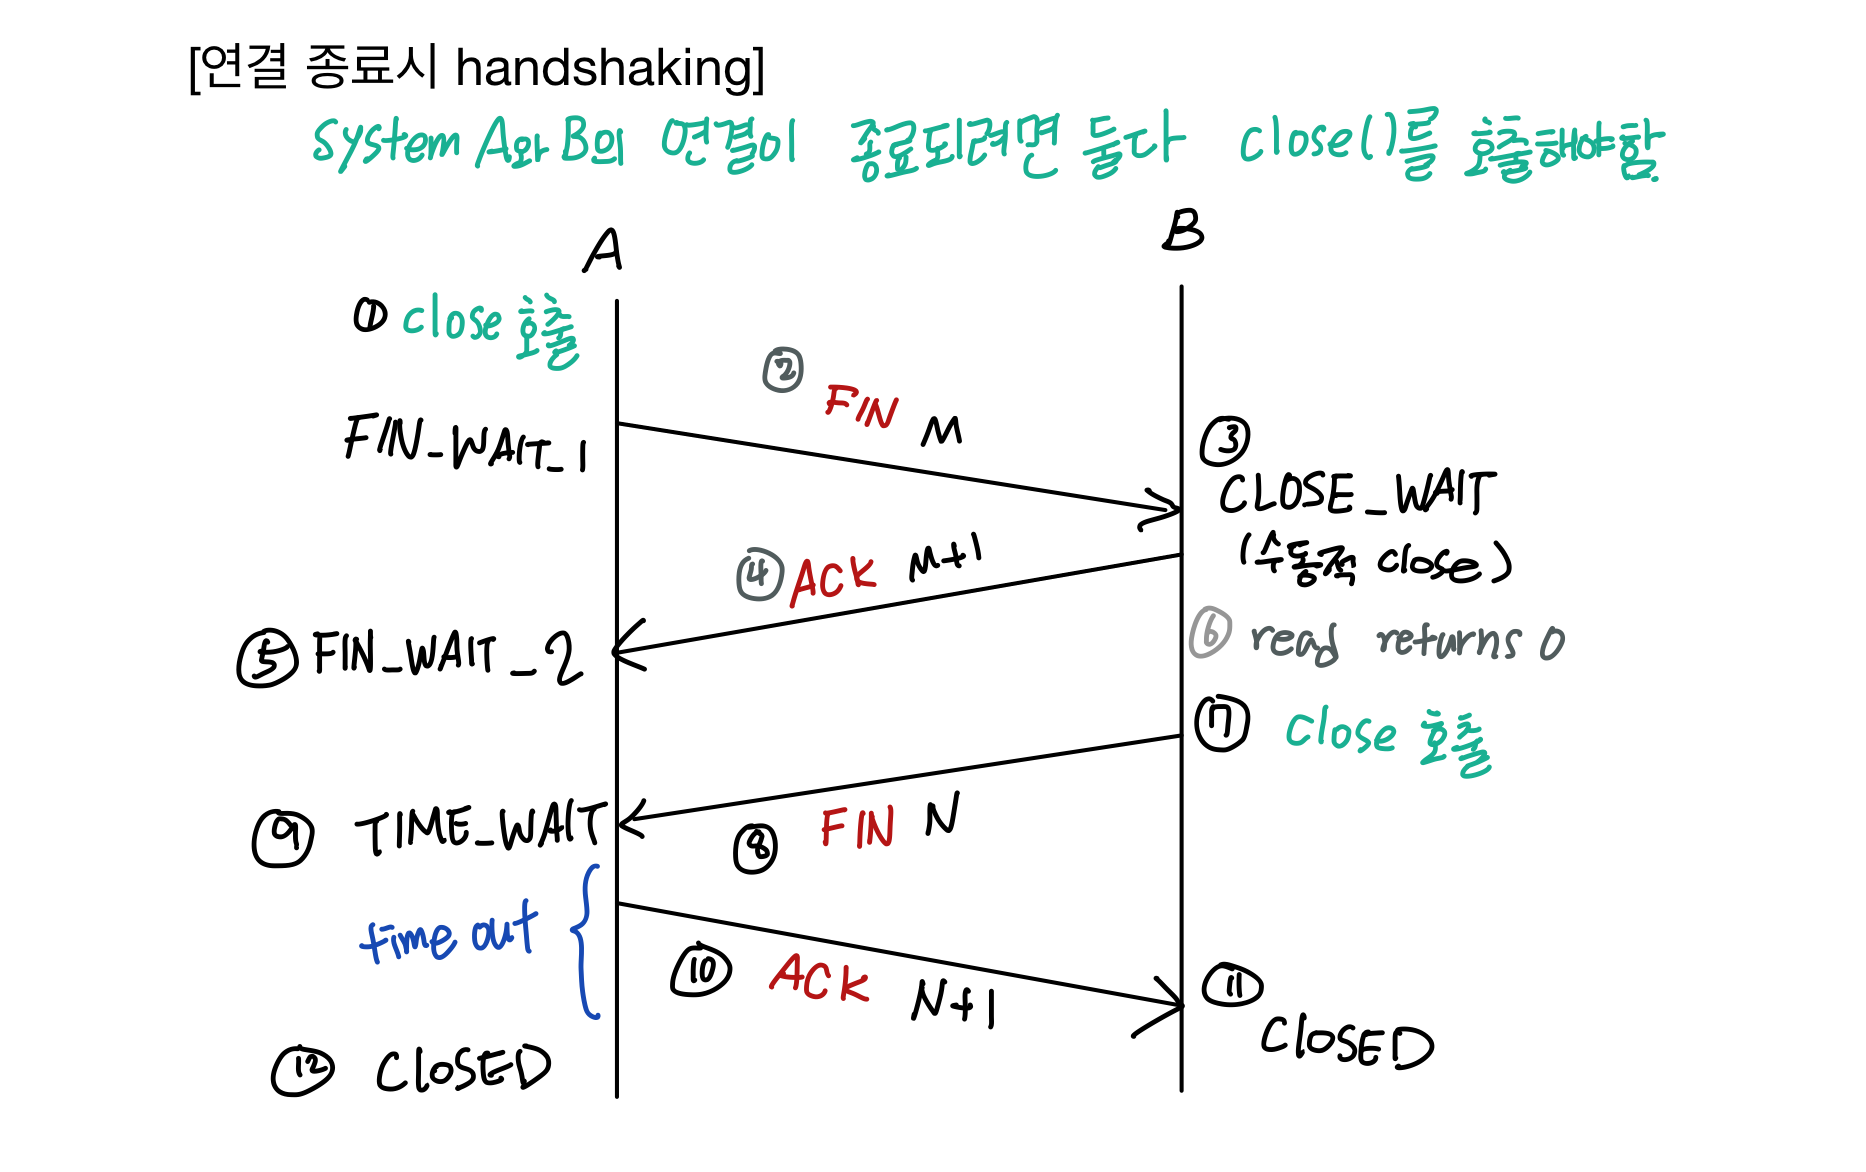 [연결 종료시 handshaking]
system A와 B의 연결이 종료되려면 둘다 close()를 호출해야함.
A
B
① close 호출
② FIN M
FIN_WAIT_1
③
CLOSE_WAIT
(수동적 close)
④ ACK M+1
⑤ FIN_WAIT_2
⑥ read returns 0
⑦ close 호출
⑧ FIN N
⑨ TIME_WAIT
time out
⑩ ACK N+1
⑪
CLOSED
⑫ CLOSED